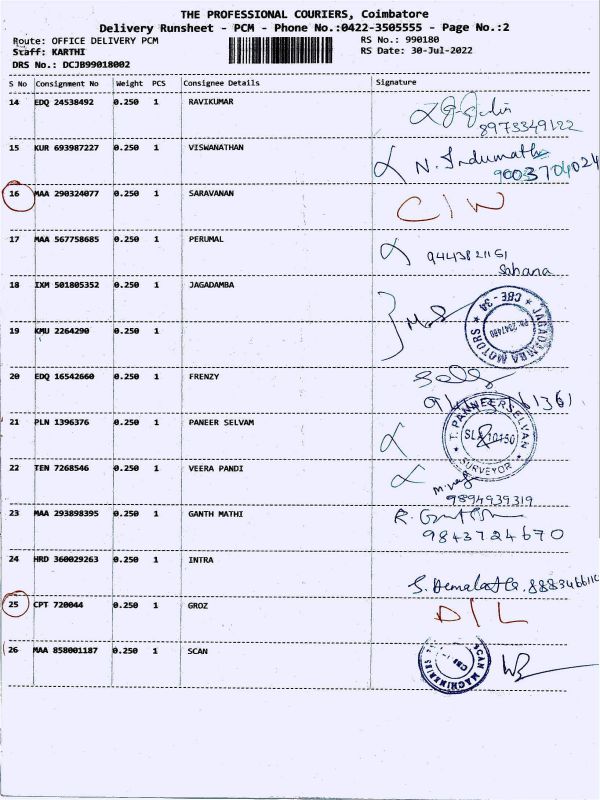 THE PROFESSIONAL COURIERS, Coimbatore
Delivery Runsheet - PCM - Phone No.:0422-3505555 - Page No.:2
Route: OFFICE DELIVERY PCM RS No.: 990180
Staff: KARTHI RS Date: 30-Jul-2022
DRS No.: DCJB99018002
S No Consignment No Weight PCS Consignee Details Signature
14 EDQ 24538492 0.250 1 RAVIKUMAR
8973349122
15 KUR 693987227 0.250 1 VISWANATHAN N. Indumathi
9003704024
16 MAA 290324077 0.250 1 SARAVANAN C/W
17 MAA 567758685 0.250 1 PERUMAL 9443821151
Sahana
18 IXM 501805352 0.250 1 JAGADAMBA
JAGADAMBA MOTORS ★ CBE - 34 ★
19 KMU 2264290 0.250 1
20 EDQ 16542660 0.250 1 FRENZY
21 PLN 1396376 0.250 1 PANEER SELVAM
T. PANNEERSELVAN
SURVEYOR
22 TEN 7268546 0.250 1 VEERA PANDI
9894939319
23 MAA 293898395 0.250 1 GANTH MATHI
9843724670
24 HRD 360029263 0.250 1 INTRA
25 CPT 720044 0.250 1 GROZ D/L
26 MAA 858001187 0.250 1 SCAN
SCAN MACHINERIES